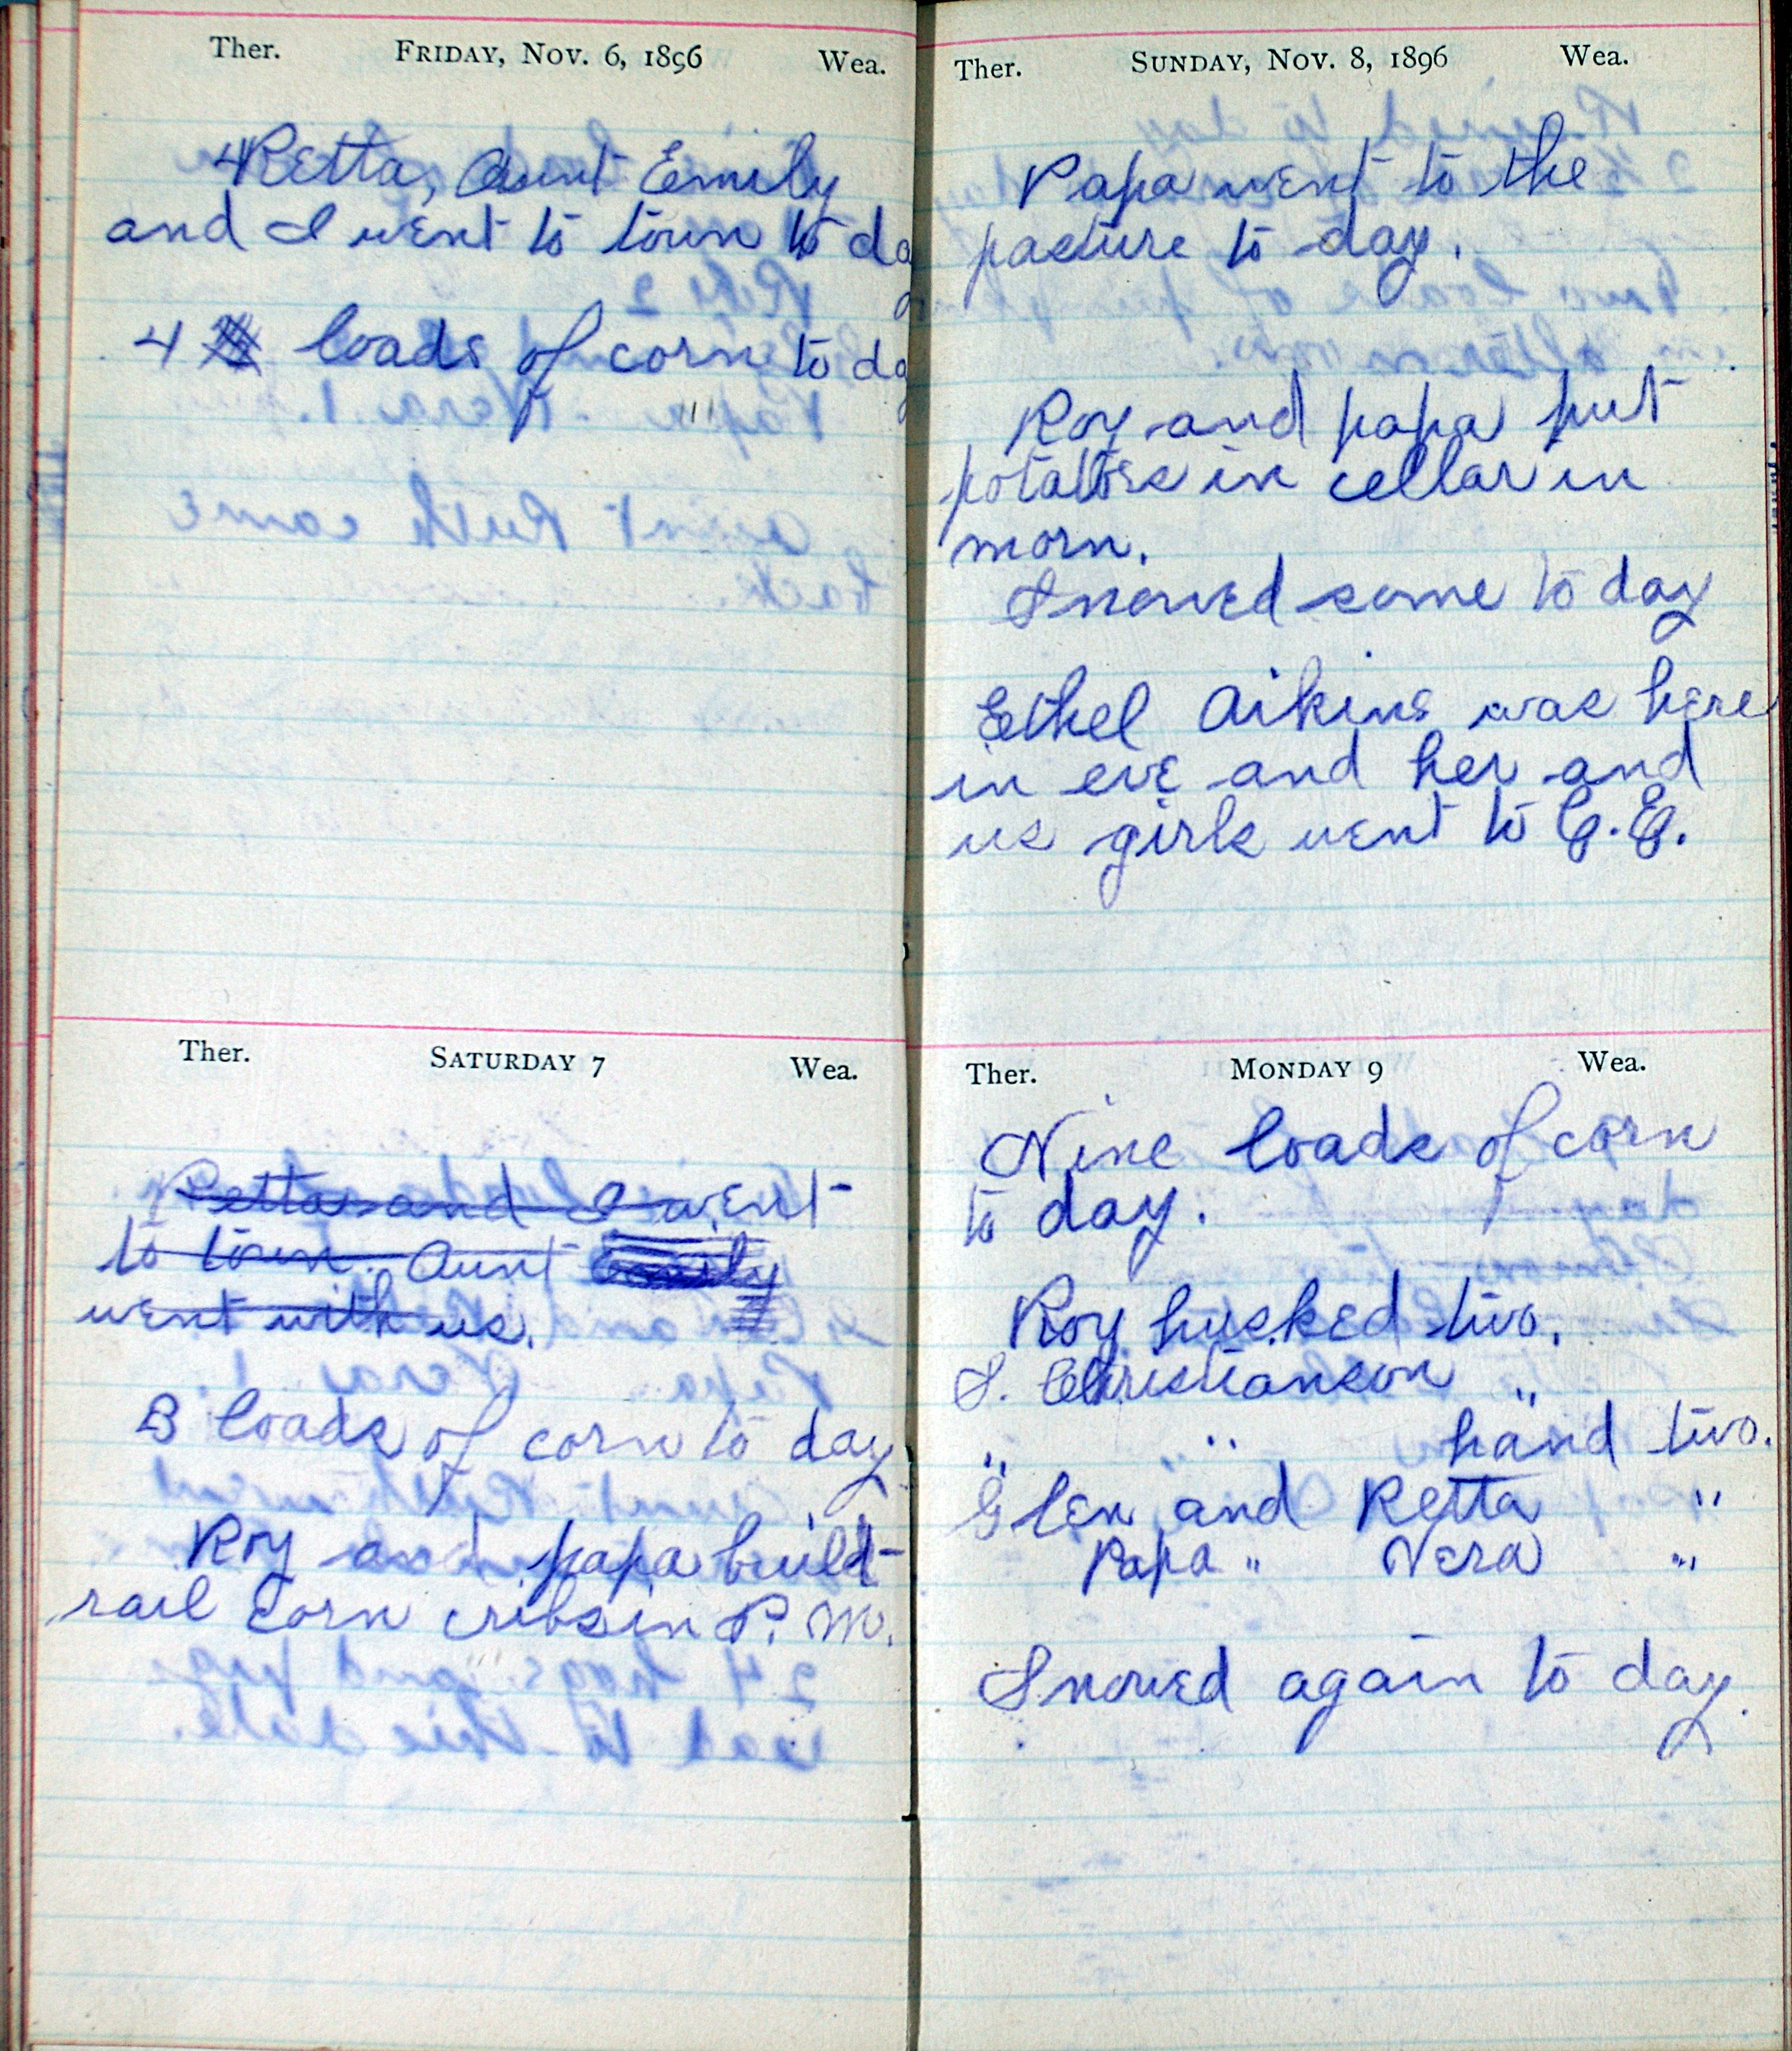 Ther. FRIDAY, NOV. 6, 1896 Wea.
Retta, Aunt Emily
and I went to town to day
4 loads of corn to day
Ther. SATURDAY 7 Wea.
Retta and I went
to town. Aunt Emily
went with us.
3 loads of corn to day
Roy and papa build
rail corn cribs in P. M.
Ther. SUNDAY, NOV. 8, 1896 Wea.
Papa went to the
pasture to day.
Roy and papa put
potatoes in cellar in
morn.
Snowed some to day
Ethel Aikins was here
in eve and her and
us girls went to C.E.
Ther. MONDAY 9 Wea.
Nine loads of corn
to day.
Roy husked two.
S. Christianson "
" " hand two.
Glen and Retta "
Papa " Vera "
Snowed again to day.